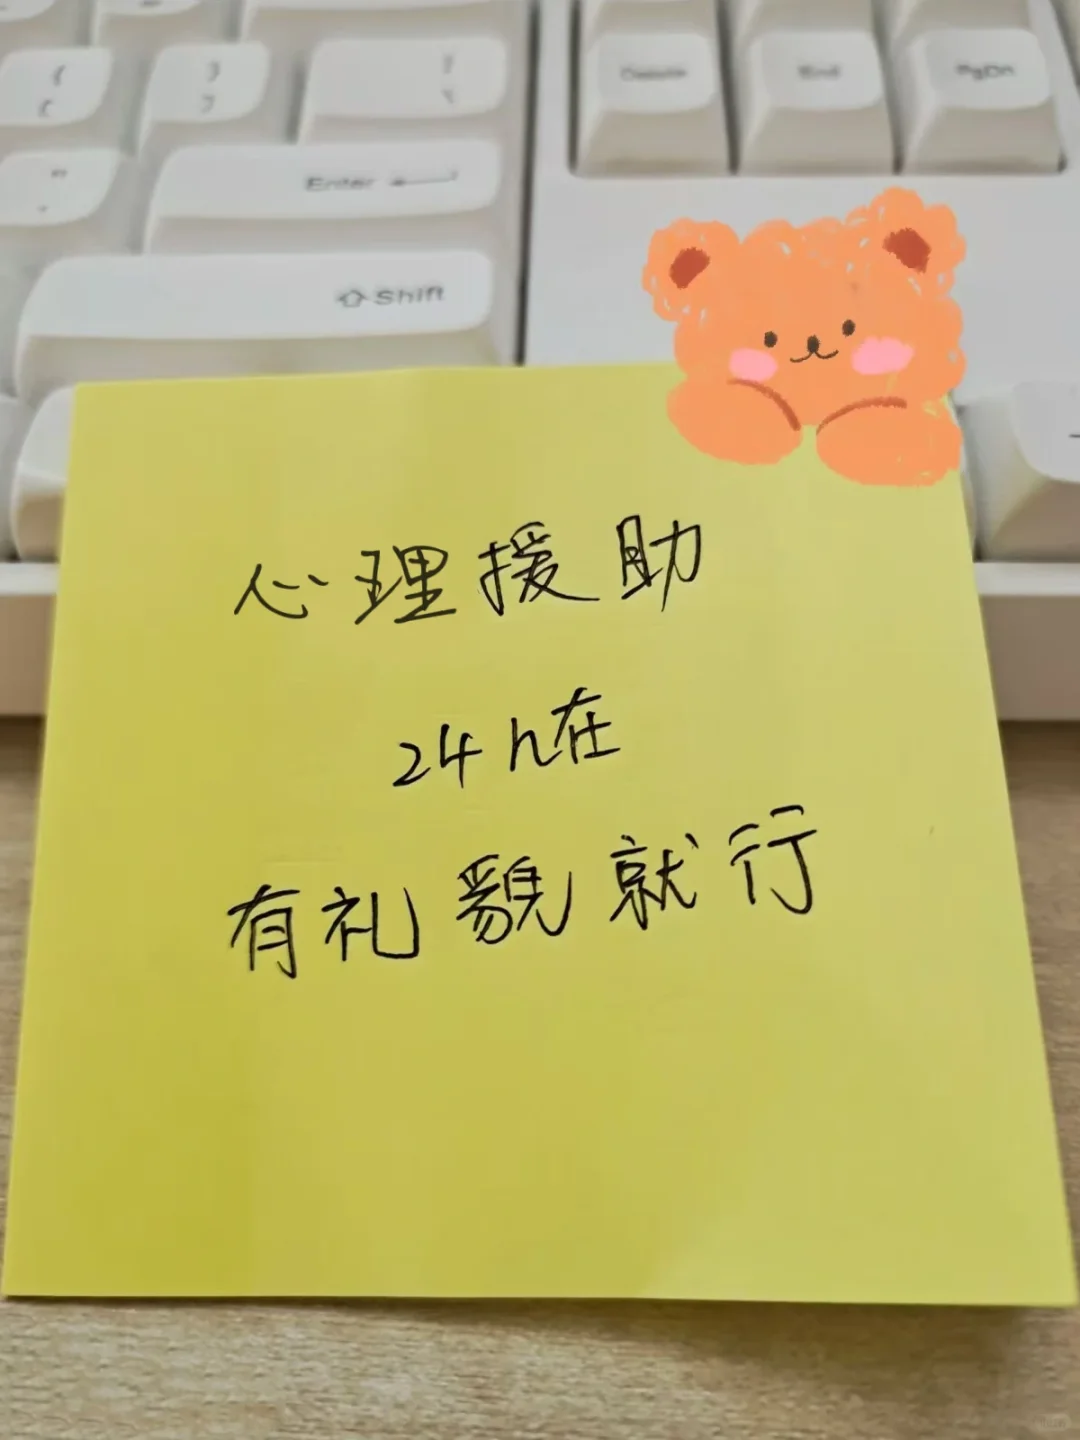 {
[
}
]
|
\
Delete
End
PgDn
"
'
Enter
Shift
心理援助
24h在
有礼貌就行